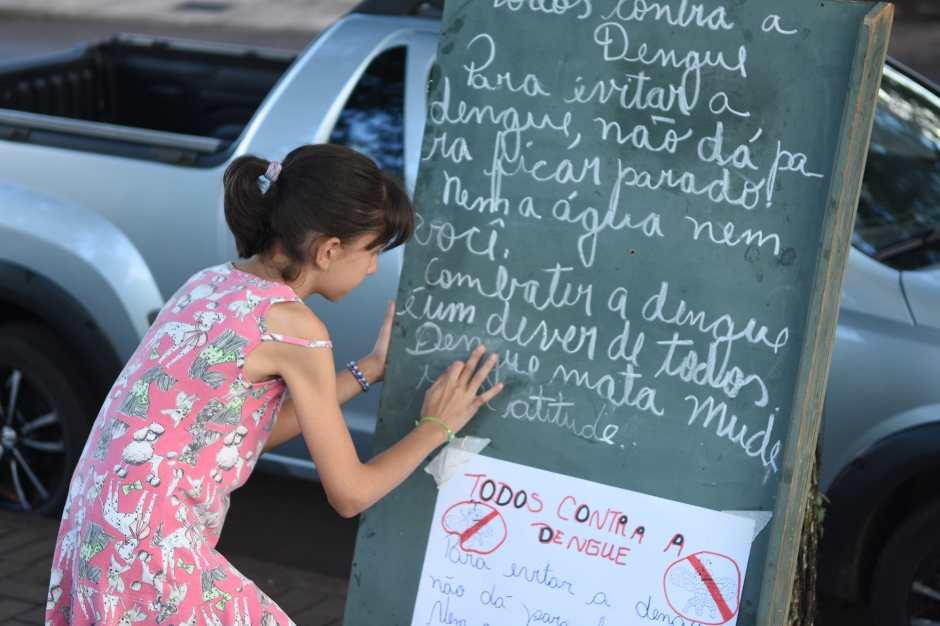 todos contra a
Dengue
Para evitar a
dengue, não dá pa
ra ficar parado!
Nem a água nem
você.
Combater a dengue
é um dever de todos
Dengue mata Mude
atitude.
TODOS CONTRA A
DENGUE
Para evitar a dengu
não dá para
Nem